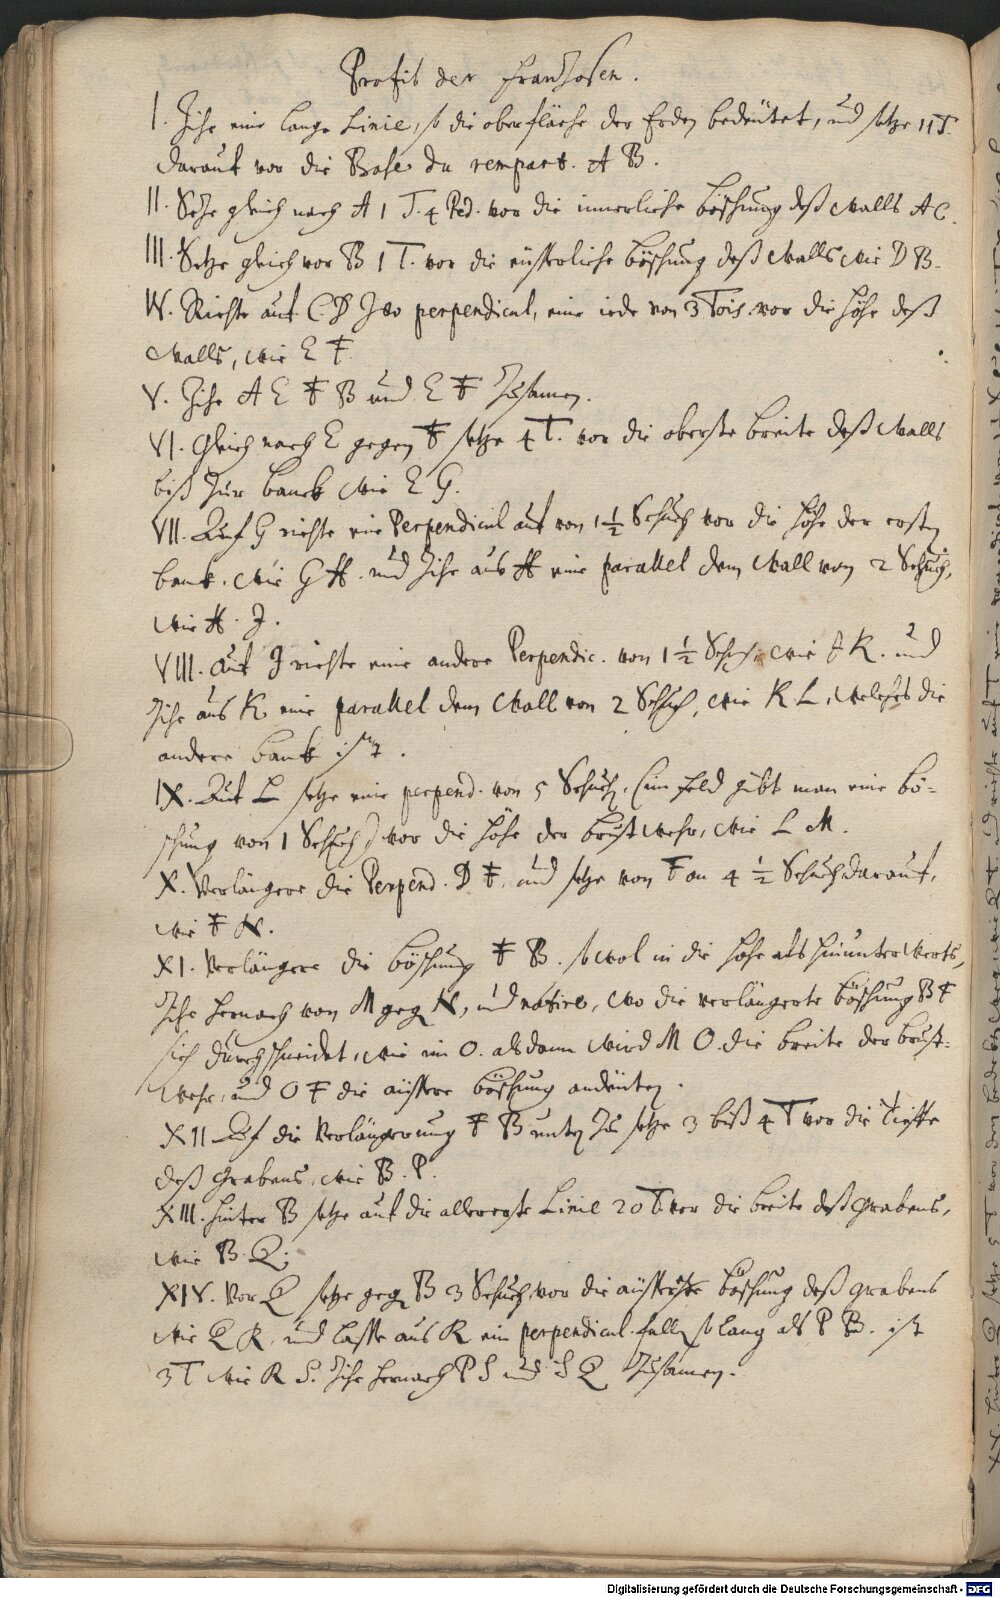 Profil der Franzosen.
I. Zihe eine lange Linie, so die oberfläche der Erden bedeütet, und setze 11 T.
darauf vor die Base du rempart. A B.
II. Setze gleich nach A 1 T. 4 Ped. vor die innerliche böschung deß Walls A C.
III. Setze gleich vor B 1 T. vor die eüsserliche böschung deß Walls wie D B.
IV. Richte auf C D Zwo perpendicul, eine iede von 3 Tois. vor die höhe deß
Walls, wie E F.
V. Zihe A E F B und E F Zusamen.
VI. Gleich nach E gegen F setze 4 T. vor die oberste breite deß Walls
biß Zur banck wie E G.
VII. Auf G richte ein Perpendicul auf von 1 1/2 Schuch vor die höhe der ersten
banck, wie G H. und Zihe aus H eine parallel dem Wall von 2 Schuch,
wie H. J.
VIII. Auf J richte eine andere Perpendic. von 1 1/2 Schuch wie J K. und
Zihe aus K eine parallel dem Wall von 2 Schuch, wie K L, welches die
andere banck ist.
IX. Auf L setze eine perpend. von 5 Schuch, (im feld gibt man eine bö-
schung von 1 Schuch) vor die höhe der brustwehr, wie L M.
X. Verlängere die Perpend. D F, und setze von F an 4 1/2 Schuch darauf,
wie F N.
XI. Verlängere die böschung F B. so wol in die höhe als hinunterwerts,
Zihe hernach von M gegen N, und notire, wo die verlängerte böschung B F
sich durchschneidet, wie im O. alsdann wird M O die breite der brust-
wehr, und O F die äüssere böschung andeüten.
XII Auf die Verlängerung F B unten Zu setze 3 biß 4 T vor die Tieffe
deß Grabens, wie B. P.
XIII. hinter B setze auf die allererste Linie 20 T. vor die breite deß Grabens,
wie B. Q.
XIV. Vor Q setze gegen B 3 Schuch vor die äüsserste böschung deß Grabens
wie Q R. und lasse aus R ein perpendicul fallen so lang als P B. ist
3 T wie R S. Zihe hernach P S und S Q Zusamen.
Digitalisierung gefördert durch die Deutsche Forschungsgemeinschaft - DFG